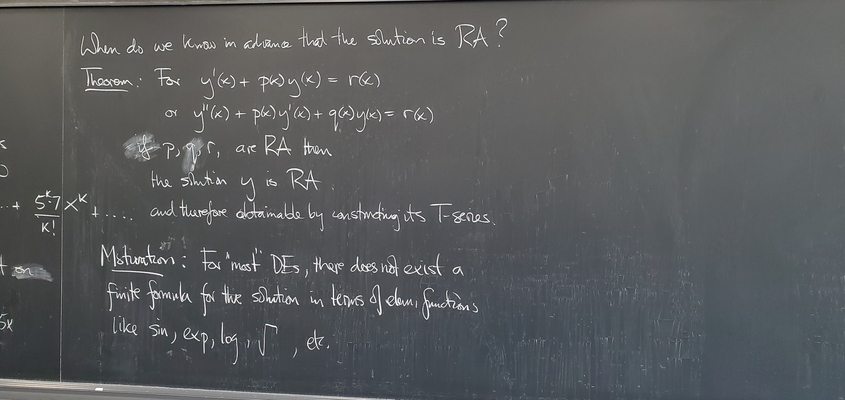 When do we know in advance that the solution is RA?
Theorem: For y'(x) + p(x) y(x) = r(x)
or y''(x) + p(x) y'(x) + q(x) y(x) = r(x)
if p, q, r, are RA then
the solution y is RA.
and therefore obtainable by constructing its T-series.
Motivation: For "most" DEs, there does not exist a
finite formula for the solution in terms of elem. functions
like sin, exp, log, √ , etc.
..+ 5^k·7/k! x^k + ....
on
5x